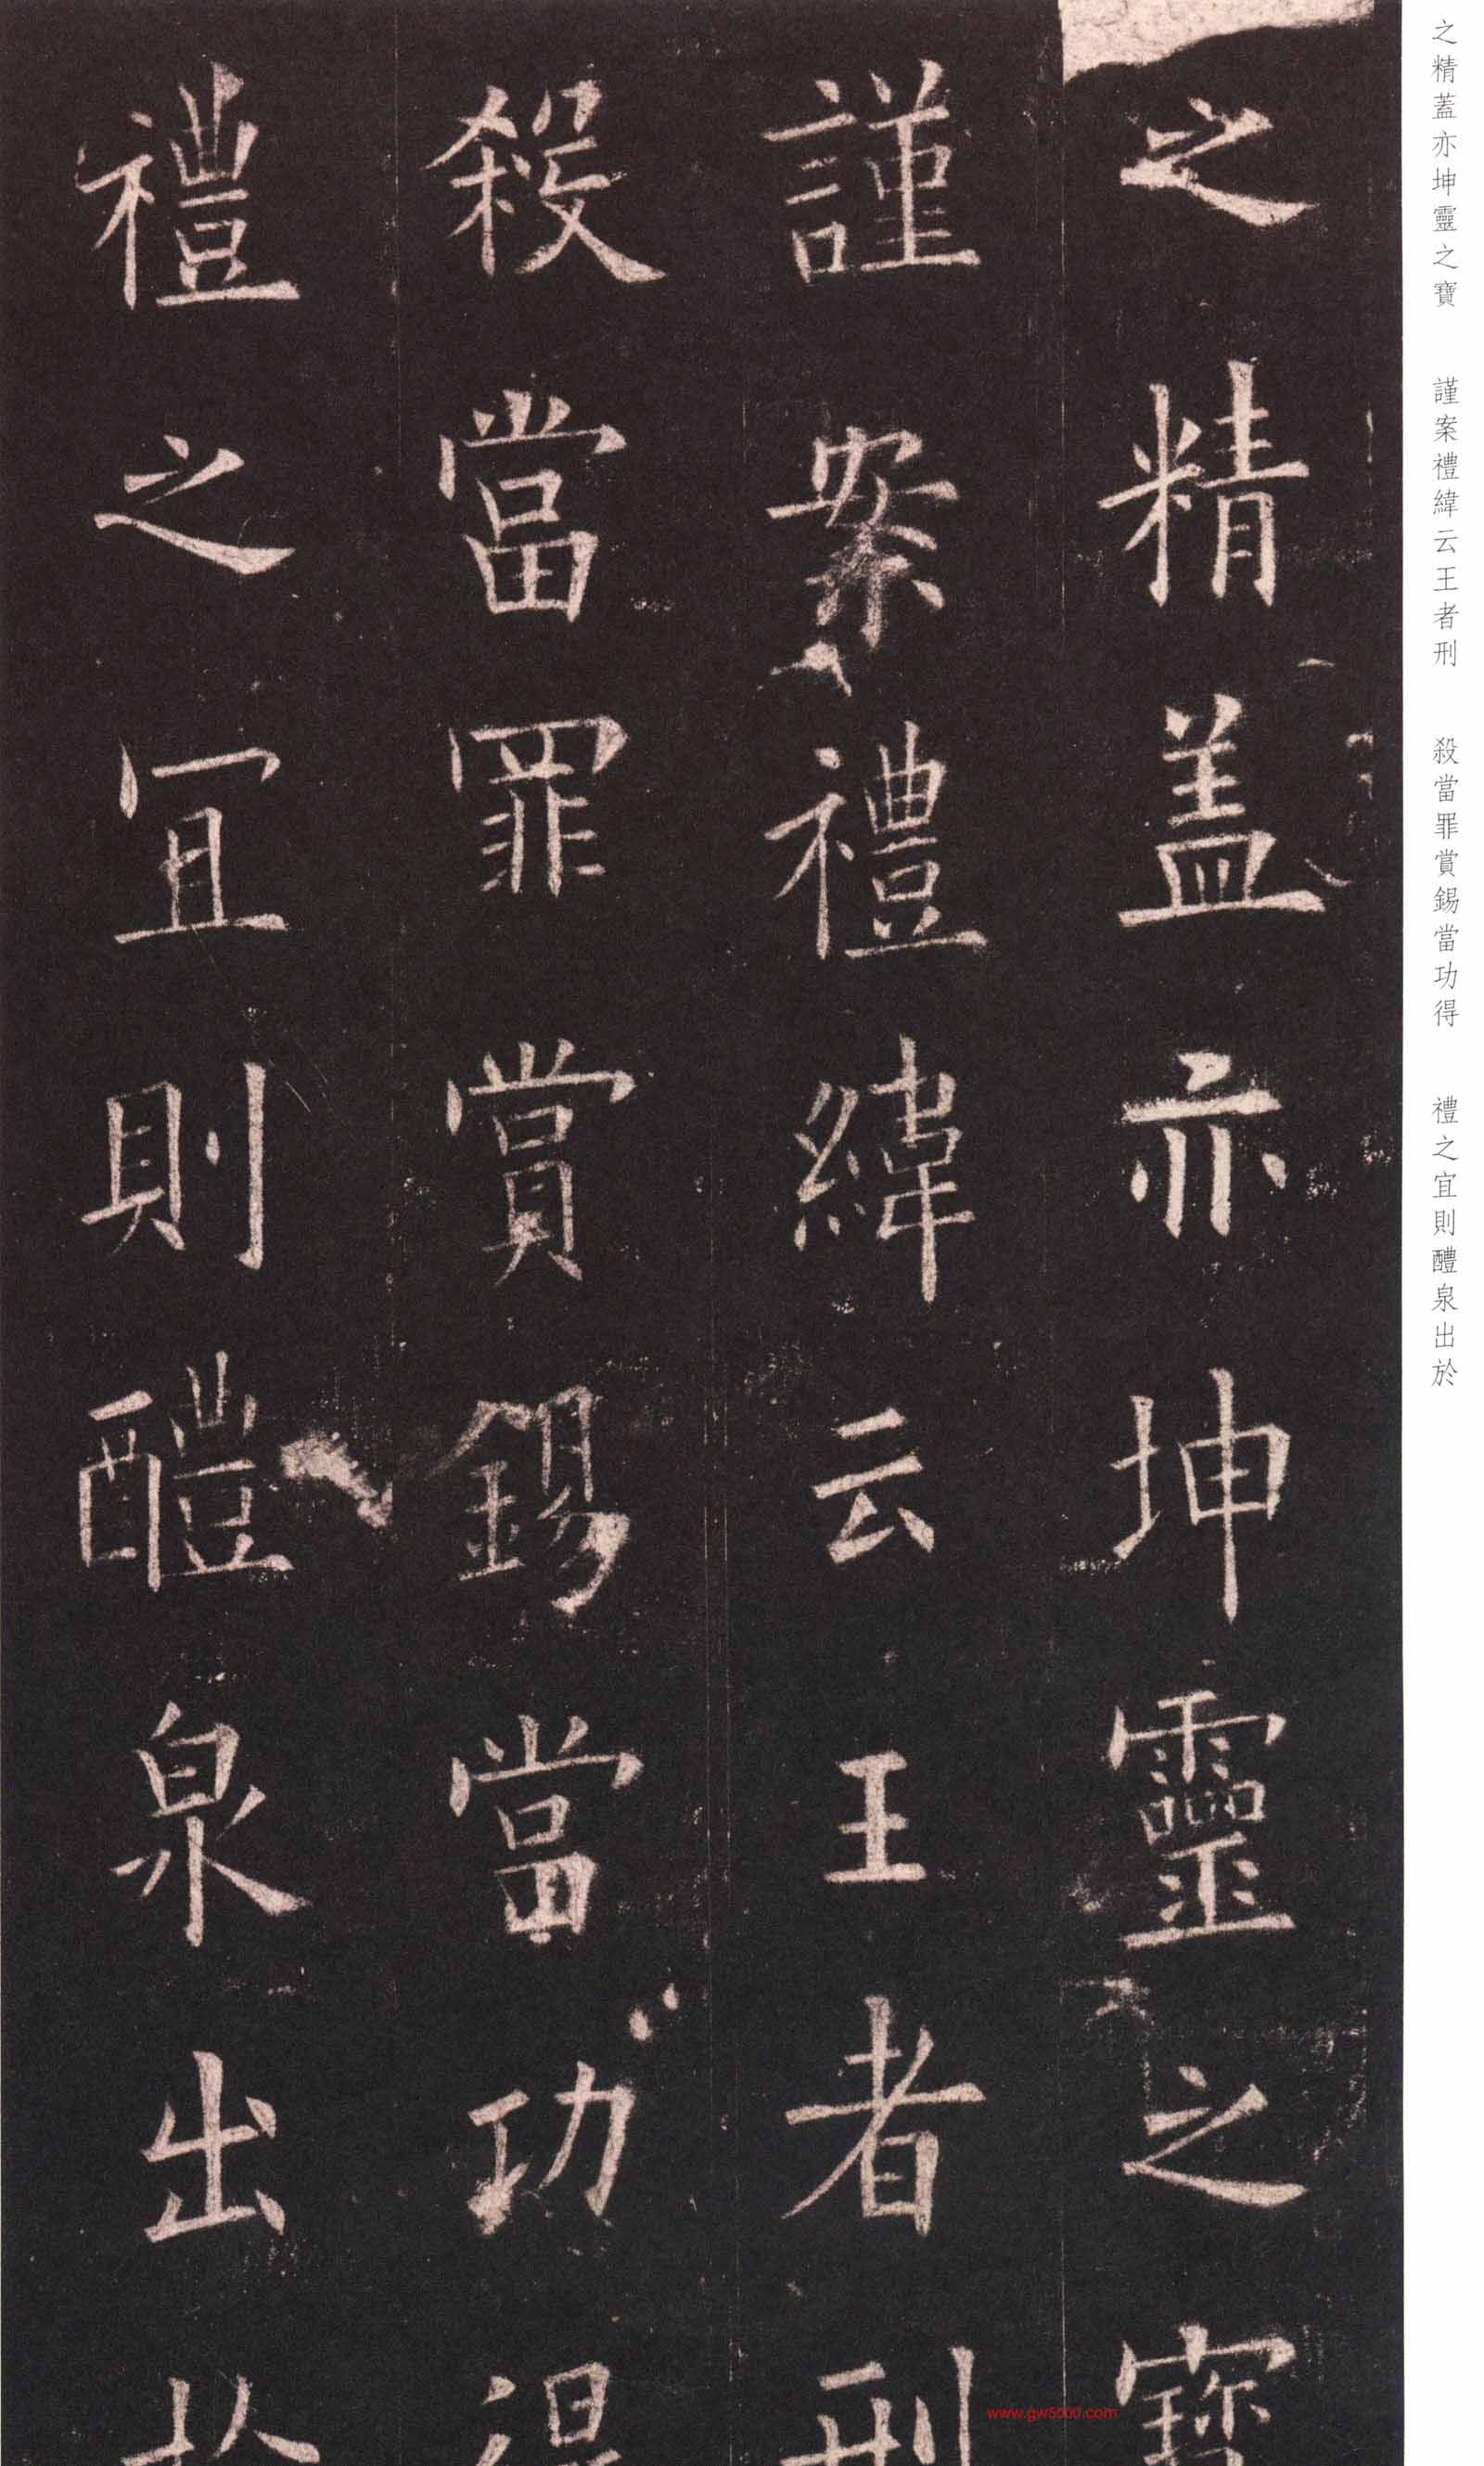 之精蓋亦坤靈之寶
謹案禮緯云王者刑
殺當罪賞錫當功得
禮之宜則醴泉出於
之精蓋亦坤靈之寶 謹案禮緯云王者刑 殺當罪賞錫當功得 禮之宜則醴泉出於
www.gw5000.com